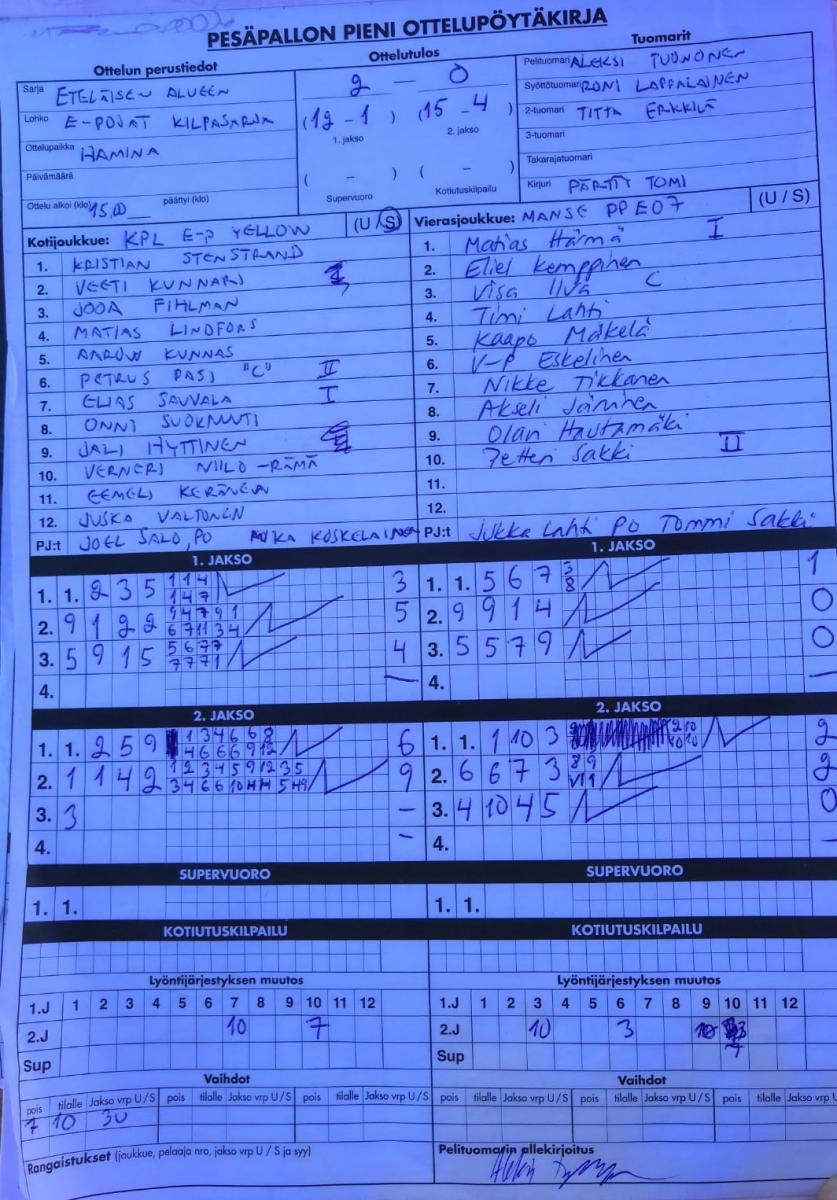 PESÄPALLON PIENI OTTELUPÖYTÄKIRJA
Ottelun perustiedot
Sarja ETELÄISEN ALUEEN
Lohko E-POJAT KILPASARJA
Ottelupaikka HAMINA
Päivämäärä
Ottelu alkoi (klo) 15,00 päättyi (klo)
Ottelutulos
2 – 0
(12 - 1) (15 - 4)
1. jakso 2. jakso
( - ) ( - )
Supervuoro Kotiutuskilpailu
Tuomarit
Pelituomari ALEKSI TUONONEN
Syöttötuomari RONI LAPPALAINEN
2-tuomari TITTA ERKKILÄ
3-tuomari
Takarajatuomari
Kirjuri PÄRTTY TOMI
Kotijoukkue: KPL E-P YELLOW (U / S)
1. KRISTIAN STENSTRAND
2. VEETI KUNNARI
3. JOOA FIHLMAN
4. MATIAS LINDFORS
5. KUNNAS
6. PETRUS PASI "C" II
7. ELIAS SAUVALA I
8. ONNI SUOKNUUTI
9. JALI HYTTINEN
10. VERNERI NIILO-RÄMÄ
11. EEMELI KERÄNEN
12. JUSKA VALTONEN
PJ:t JOEL SALO, PO KOSKELAINEN
Vierasjoukkue: MANSE PP E07 (U / S)
1. Matias Härmä I
2. Eliel Kemppinen
3. Visa Ilvä C
4. Timi Lahti
5. Kaapo Mäkelä
6. V-P Eskelinen
7. Nikke Tikkanen
8. Akseli Järvinen
9. Olavi Hautamäki
10. Petteri Sakki II
11.
12.
PJ:t Jukka Lahti PO Tommi Sakki
1. JAKSO
1. 1. 2 3 5 1 1 4 3
1 4 7
2. 9 1 2 2 9 4 7 9 1 5
6 7 11 3 4
3. 5 9 1 5 5 6 7 7 4
7 7 7 1
4. –
1. JAKSO
1. 1. 5 6 7 3 1
8
2. 9 9 1 4 0
3. 5 5 7 9 0
4. –
2. JAKSO
1. 1. 2 5 9 1 3 4 6 6 8 6
4 6 6 9 12
2. 1 1 4 2 1 2 3 4 5 9 12 3 5 9
3. 3 –
4. –
2. JAKSO
1. 1. 1 10 3 2 10 2
10 10
2. 6 6 7 3 8 9 2
3. 4 10 4 5 0
4. –
SUPERVUORO
1. 1.
SUPERVUORO
1. 1.
KOTIUTUSKILPAILU
KOTIUTUSKILPAILU
Lyöntijärjestyksen muutos
1.J 1 2 3 4 5 6 7 8 9 10 11 12
2.J 10 7
Sup
Lyöntijärjestyksen muutos
1.J 1 2 3 4 5 6 7 8 9 10 11 12
2.J 10 3 10
Sup
Vaihdot
pois tilalle Jakso vrp U / S pois tilalle Jakso vrp U / S pois tilalle Jakso vrp U / S
7 10 3U
Vaihdot
pois tilalle Jakso vrp U / S pois tilalle Jakso vrp U / S pois tilalle Jakso vrp U
Rangaistukset (joukkue, pelaaja nro, jakso vrp U / S ja syy)
Pelituomarin allekirjoitus